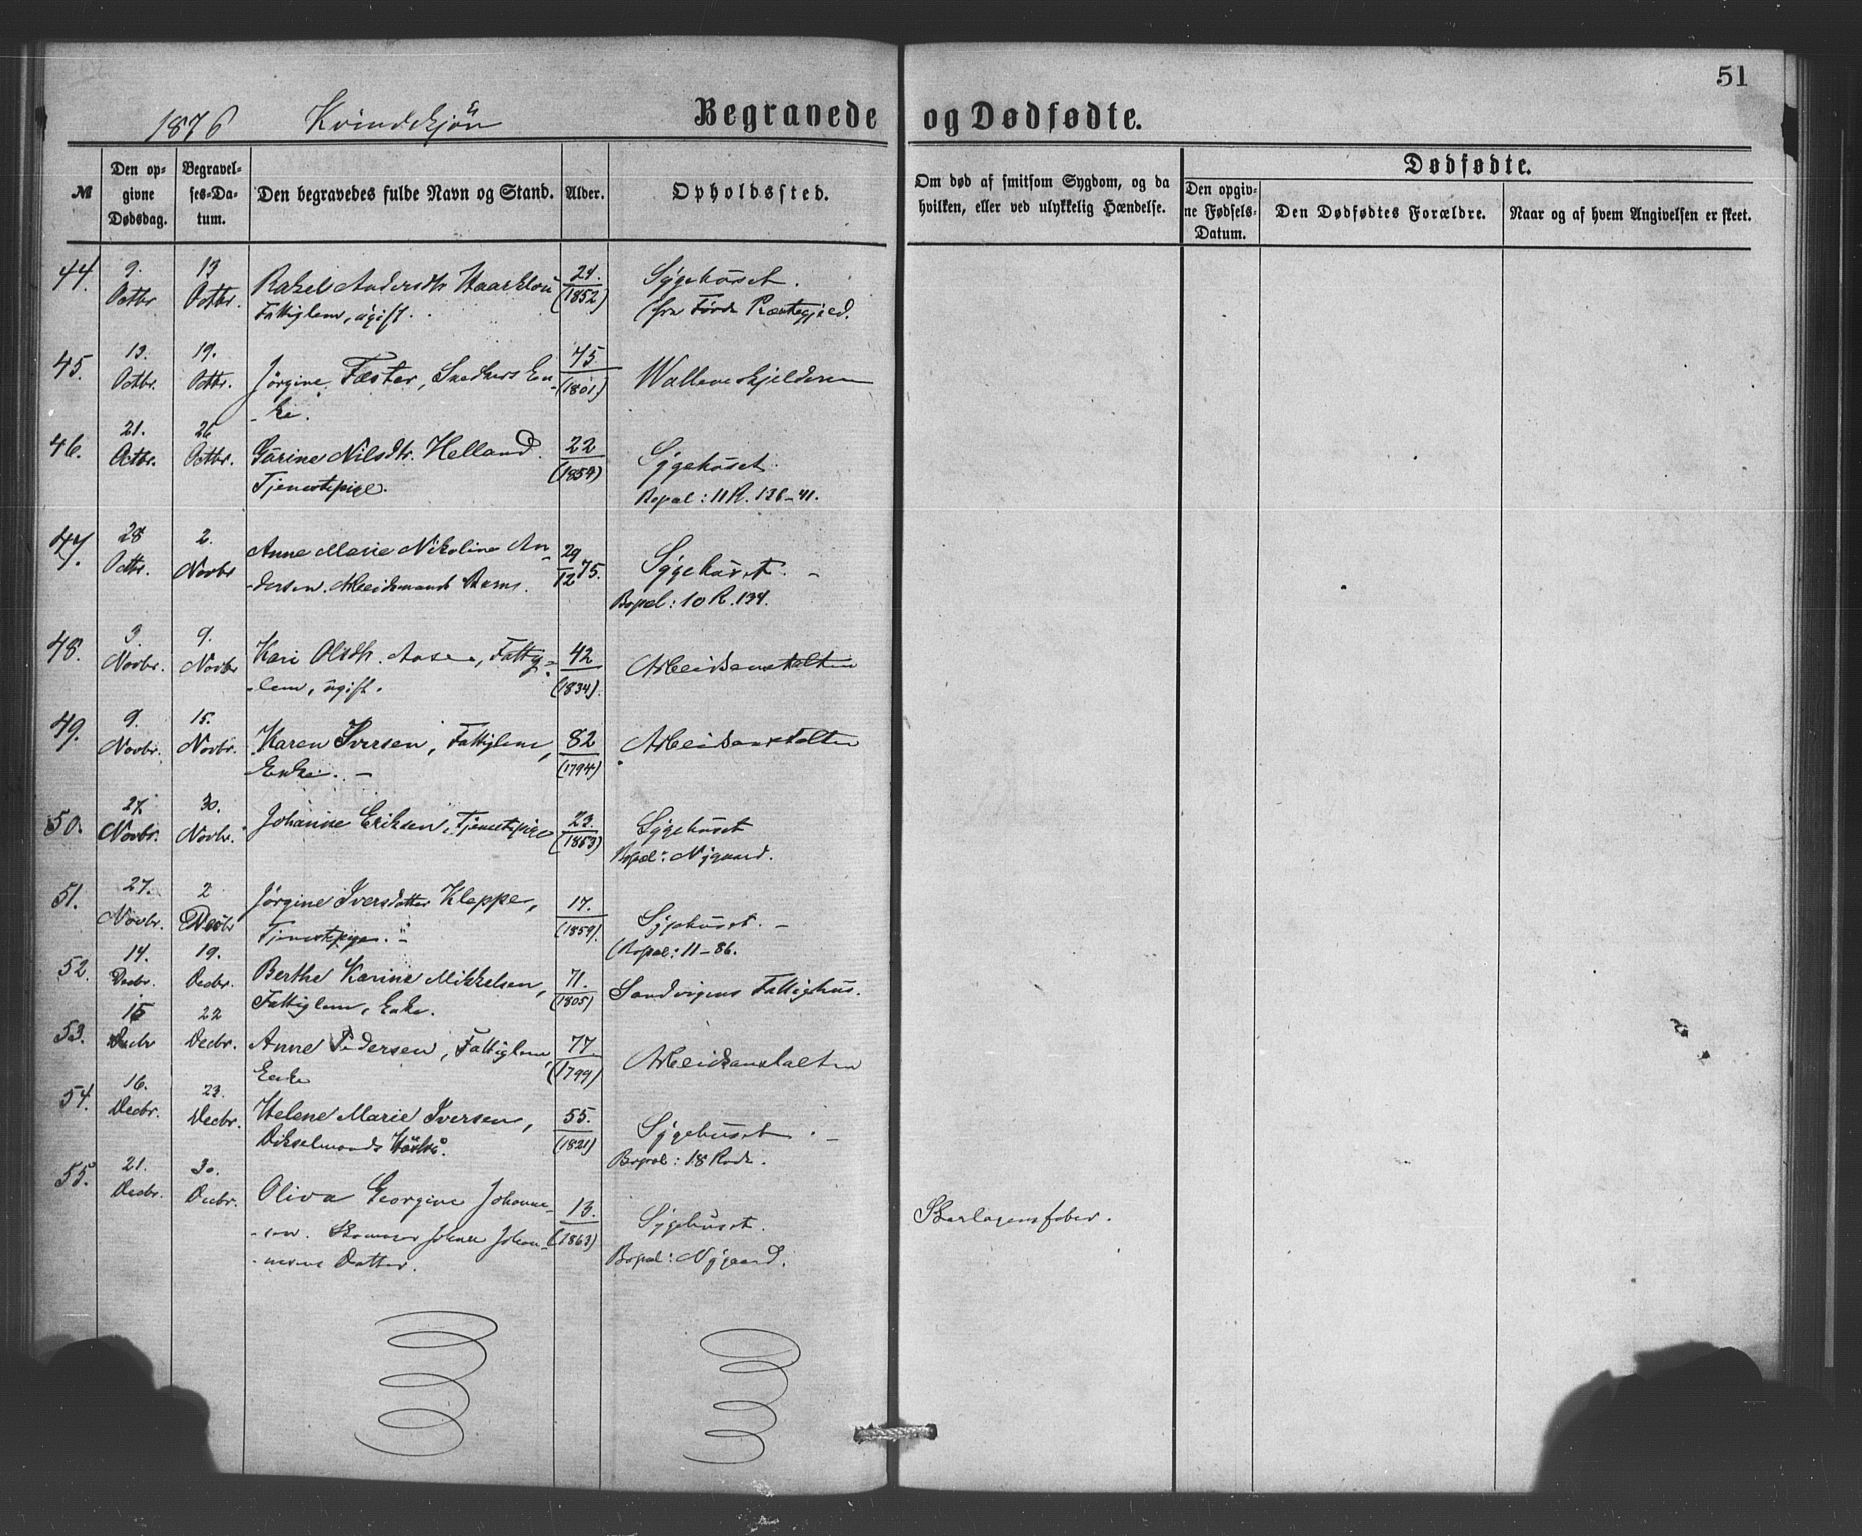 51
1876 Kvindekjön Begravede og Dødfødte.
№ Den opgivne Dødsdag. Begravelses-Datum. Den begravedes fulde Navn og Stand. Alder. Opholdssted. Om død af smitsom Sygdom, og da hvilken, eller ved ulykkelig Hændelse. Dødfødte. Den opgivne Fødsels-Datum. Den Dødfødtes Forældre. Naar og af hvem Angivelsen er skeet.
44. 9. Octbr. 13 Octbr. Rakel Andersdtr. 24. (1852) Sygehuset.
Fattiglem, ugift. fra Førde Præstegjeld.
45. 13. Octbr. 19. Octbr. Jørgine Fæster, Snedkers En- 75 (1801)
ke.
46. 21. Octbr. 26 Octbr. Gurine Nilsdtr. Helland. 22 (1854) Sygehuset.
Tjenestepige. Bopæl: 11 R. 136-41.
47. 28 Octbr. 2. Novbr Anne Marie Nikoline An- 29/12 75. Sygehuset. -
dersen. Arbeidsmands Barn. Bopæl: 10 R. 134.
48. 3. Novbr. 9. Novbr Kari Olsdtr. Aase, Fattig- 42 (1834). Arbeidsanstalten
lem, ugift.
49. 9. Novbr. 15. Novbr. Karen Iversen, Fattiglem, 82 (1794) Arbeidsanstalten
Enke. -
50. 27 Novbr. 30. Novbr. Johanne Eriksen, Tjenestepige 23. (1853) Sygehuset
Bopæl: Nygaard.
51. 27. Novbr. 2 Decbr Jørgine Iversdatter Kleppe, 17. (1859). Sygehuset. -
Tjenestepige. - Bopæl: 11-86.
52. 14. Decbr. 19. Decbr. Berthe Karine Mikkelsen, 71. (1805) Sandvigens Fattighus.
Fattiglem, Enke.
53. 15 Decbr 22 Decbr. Anne Pedersen, Fattiglem, 77 (1799) Arbeidsanstalten
Enke
54. 16. Decbr. 23. Decbr. Helene Marie Iversen, 55. (1821) Sygehuset. -
Dikselmands Bopæl: 18 Rode.
55. 21. Decbr. 30. Decbr. Oliva Georgine Johanne- 13. (1863) Sygehuset. Skarlagensfeber.
sen. Johan-
nesens Datter. Bopæl: Nygaard.